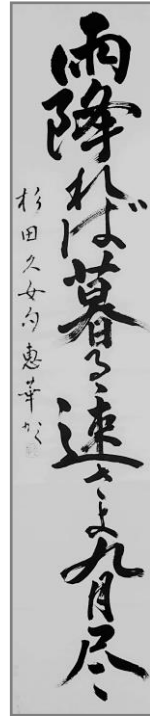 雨降れば暮るゝ速さよ九月尽
杉田久女句 惠華かく